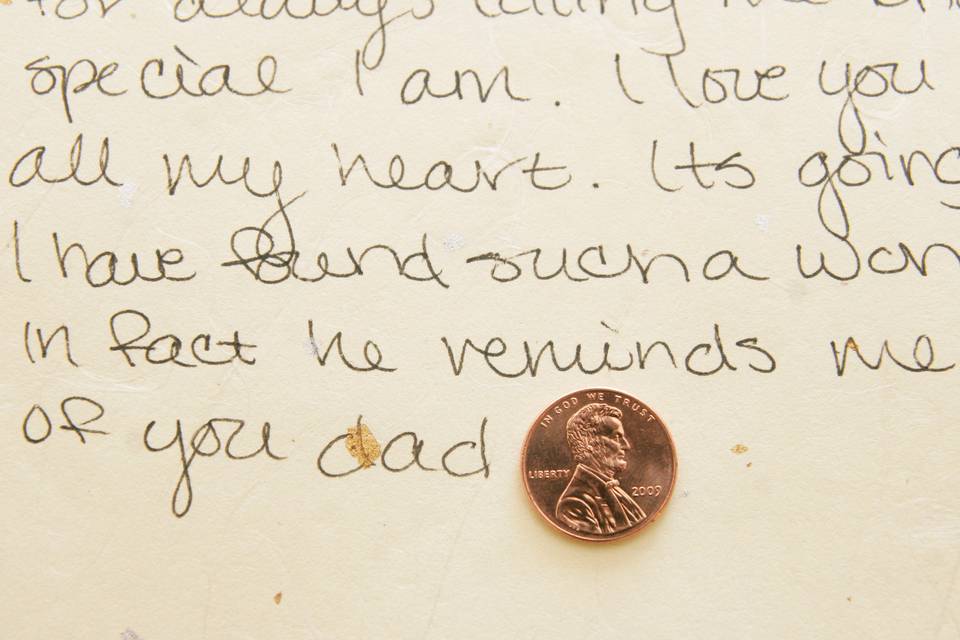 for always telling me
special I am. I love you
all my heart. Its going
I have found such a won
in fact he reminds me
of you dad
IN GOD WE TRUST
LIBERTY
2009